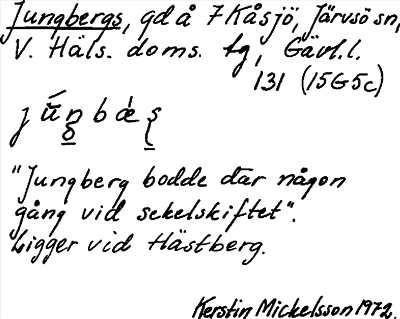 Jungbergs, gd å 7 Kåsjö, Järvsö sn,
V. Häls. doms. tg, Gävl.l.
131 (15G5c)
"Jungberg bodde där någon
gång vid sekelskiftet".
Ligger vid Hästberg.
Kerstin Mickelsson 1972.